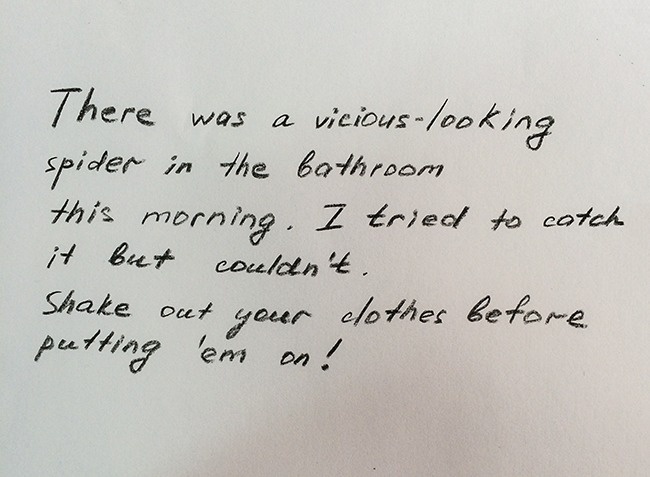 There was a vicious-looking
spider in the bathroom
this morning. I tried to catch
it but couldn't.
Shake out your clothes before
putting 'em on!